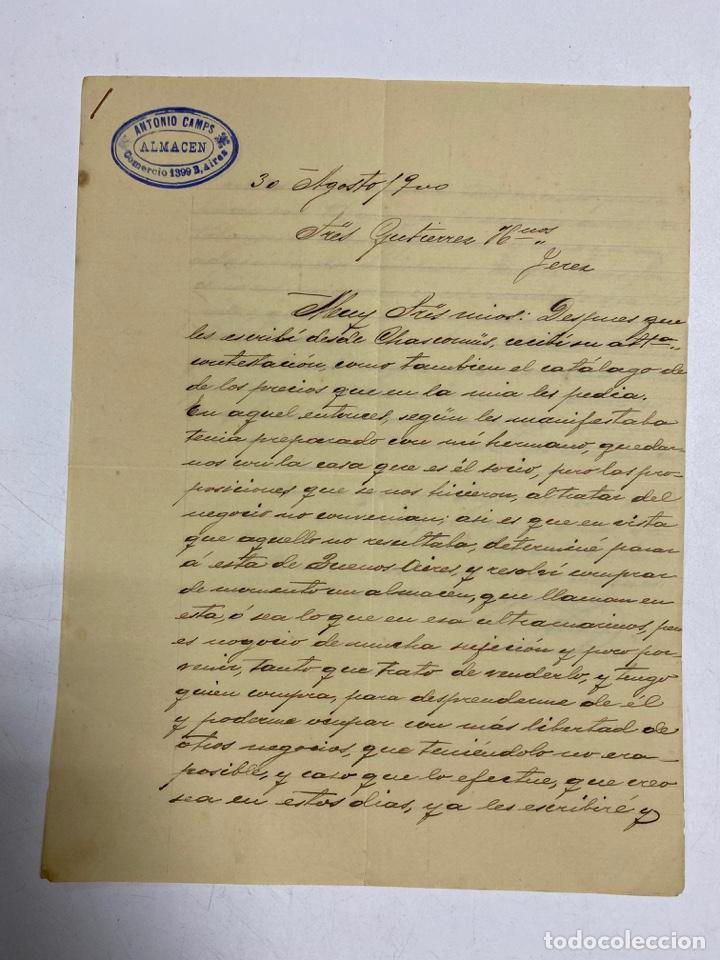 ANTONIO CAMPS
ALMACEN
Comercio 1399 B, Aires
30 Agosto/900
Srēs Gutierrez Hnos
Jerez
Muy Srēs mios: Despues que
les escribí desde Chascomús, recibí su atta
contestación, como tambien el catálago de
de los precios que en la mia les pedia.
En aquel entonces, según les manifestaba
tenia preparado con mi hermano, quedar
nos con la casa que es él socio, pero las pro-
posiciones que se nos hicieron, al tratar del
negocio no convenian; asi es que en vista
que aquello no resultaba, determiné parar
á esta de Buenos Aires, y resolví comprar
de momento un almacén, que llaman en
esta, ó sea lo que en esa ultramarinos, pero
es negocio de mucha sujeción y poco por-
venir, tanto que trato de venderlo, y tengo
quien compra, para desprenderme de él
y poderme ocupar con más libertad de
otros negocios, que teniéndolo no era
posible, y caso que lo efectue, que creo
sea en estos dias, ya les escribiré y
todocoleccion
todocoleccion.net